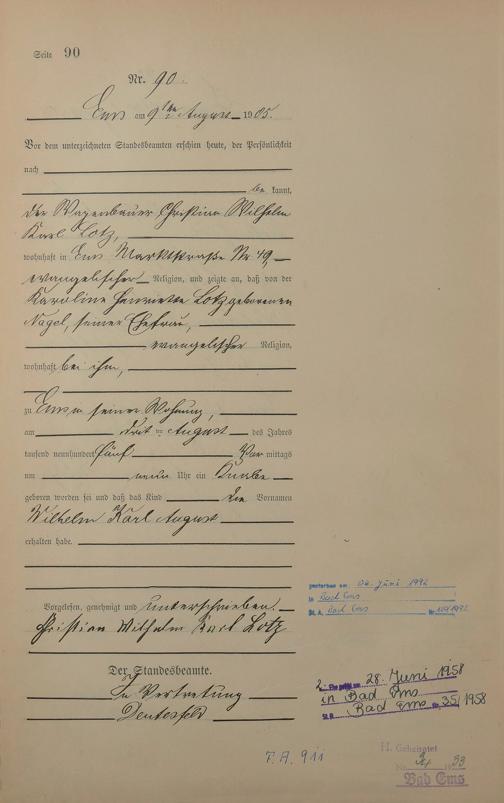 Seite 90
Nr. 90.
Ems am 9ten August 1905.
Vor dem unterzeichneten Standesbeamten erschien heute, der Persönlichkeit
nach
be kannt,
der Wagenbauer Christian Wilhelm
Karl Lotz,
wohnhaft in Ems Marktstraße Nr 49,
evangelischer Religion, und zeigte an, daß von der
Karoline Henriette Lotz geborenen
Nagel, seiner Ehefrau,
evangelischer Religion,
wohnhaft bei ihm,
zu Ems in seiner Wohnung,
am August des Jahres
tausend neunhundert fünf Vor mittags
um neun Uhr ein Knabe
geboren worden sei und daß das Kind die Vornamen
Wilhelm Karl August
erhalten habe.
Vorgelesen, genehmigt und unterschrieben.
Christian Wilhelm Karl Lotz
Der Standesbeamte.
In Vertretung
gestorben am 06. Juni 1992
in Bad Ems
St. A. Bad Ems Nr.
2. Ehe 28. Juni 1958
in Bad Ems
St.A. Bad Ems Nr. 35/1958
F.A. 911
H. Geheiratet
Nr. 33
Bad Ems